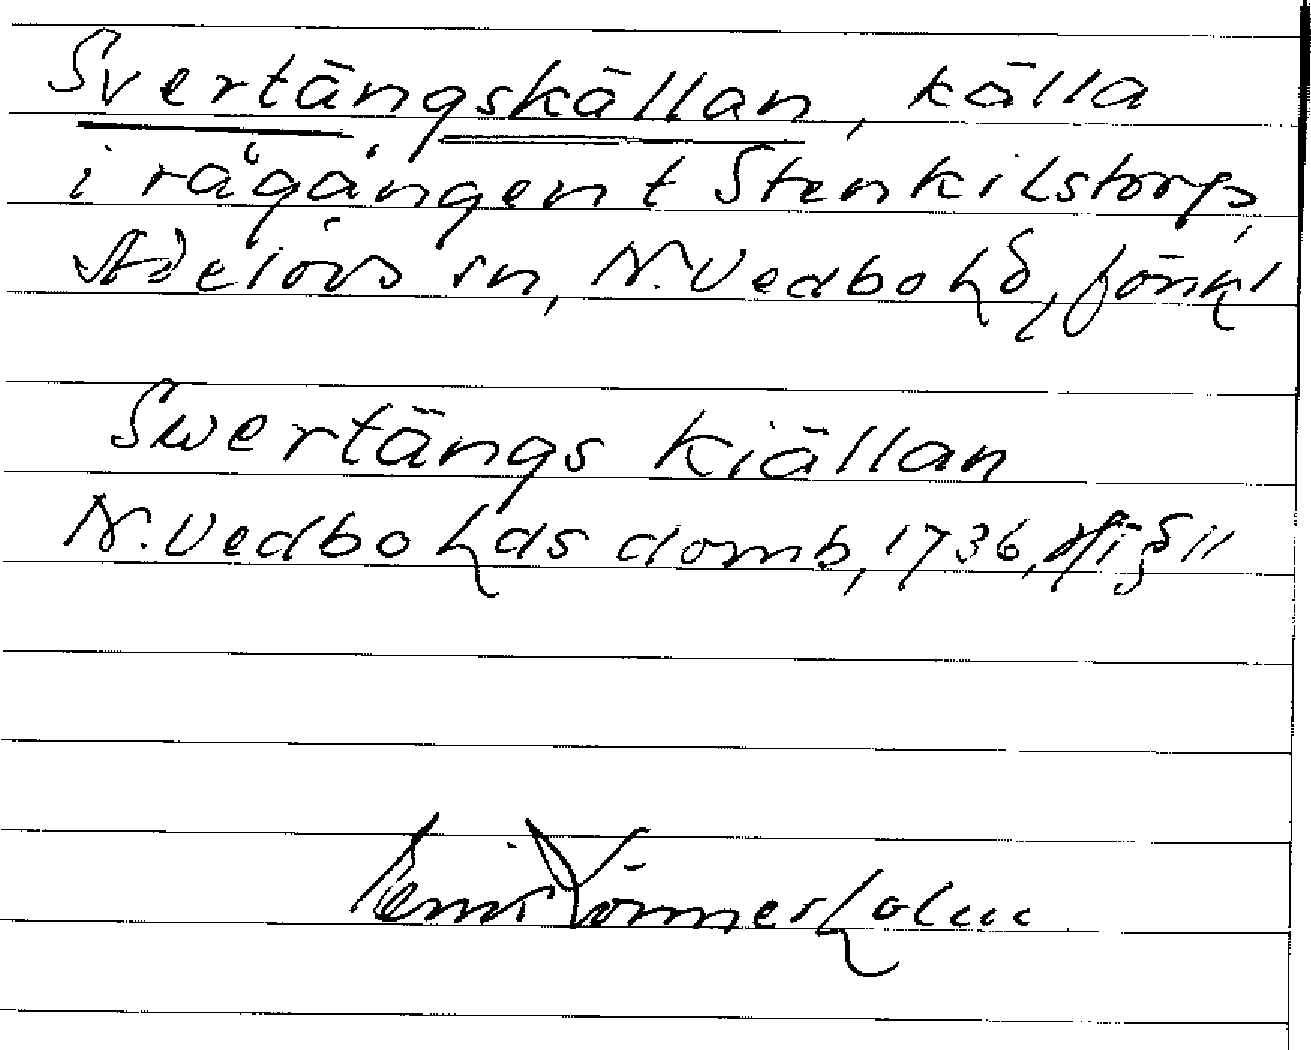 Svertängskällan, källa
i rågången t Stenkilstorp,
Adelövs sn, N. Vedbo hd, Jönk l
Swertängs kiällan
N. Vedbo hds domb, 1736, § 11